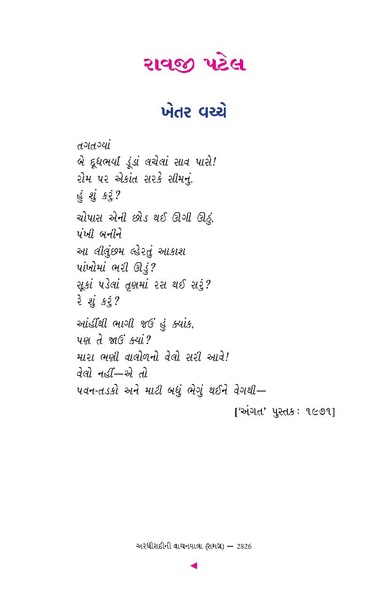 રાવજી પટેલ
ખેતર વચ્ચે
તગતગ્યાં
બે દૂધભર્યાં ડૂંડાં લચેલાં સાવ પાસે!
રોમ પર એકાંત સરકે સીમનું.
હું શું કરું?
ચોપાસ એની છોડ થઈ ઊગી ઊઠું,
પંખી બનીને
આ લીલુંછમ લ્હેરતું આકાશ
પાંખોમાં ભરી ઊડું?
સૂકાં પડેલાં તૃણમાં રસ થઈ સરું?
રે શું કરું?
આંહીંથી ભાગી જઉં હું ક્યાંક,
પણ તે જાઉં ક્યાં?
મારા ભણી વાલોળનો વેલો સરી આવે!
વેલો નહીં—એ તો
પવન-તડકો અને માટી બધું ભેગું થઈને વેગથી—
['અંગત' પુસ્તક: ૧૯૭૧]
અરધીસદીની વાચનયાત્રા (સમગ્ર) — 2826